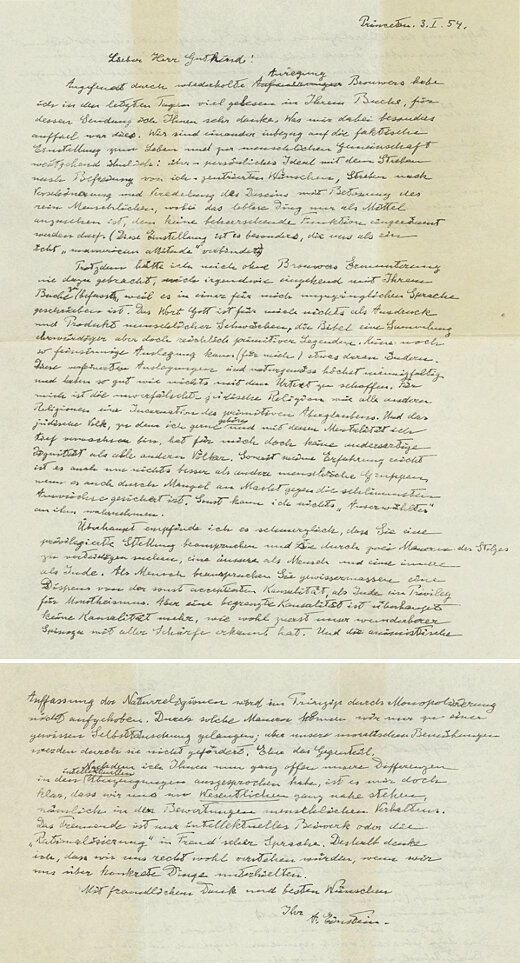 Princeton. 3. I. 54.
Lieber Herr Gutkind!
Angefeuert durch wiederholte Anregung Brouwers habe
ich in den letzten Tagen viel gelesen in Ihrem Buche, für
dessen Sendung ich Ihnen sehr danke. Was mir dabei besonders
auffiel war dies. Wir sind einander inbezug auf die faktische
Einstellung zum Leben und zur menschlichen Gemeinschaft
weitgehend ähnlich: Ihr persönliches Ideal mit dem Streben
nach Befreiung von ich-zentrierten Wünschen, Streben nach
Verschönerung und Veredelung des Daseins mit Betonung des
rein Menschlichen, wobei das leblose Ding nur als Mittel
anzusehen ist, dem keine beherrschende Funktion eingeräumt
werden darf. (Diese Einstellung ist es besonders, die uns als ein
echt „unamerican attitude" verbindet)
Trotzdem hätte ich mich ohne Brouwers Ermunterung
nie dazu gebracht, mich irgendwie eingehend mit Ihrem
Buche zu befassen, weil es in einer für mich unzugänglichen Sprache
geschrieben ist. Das Wort Gott ist für mich nichts als Ausdruck
und Produkt menschlicher Schwächen, die Bibel eine Sammlung
ehrwürdiger aber doch reichlich primitiver Legenden. Keine noch
so feinsinnige Auslegung kann (für mich) etwas daran ändern.
Diese verfeinerten Auslegungen sind naturgemäss höchst mannigfaltig
und haben so gut wie nichts mit dem Urtext zu schaffen. Für
mich ist die unverfälschte jüdische Religion wie alle anderen
Religionen eine Incarnation des primitiven Aberglaubens. Und das
jüdische Volk, zu dem ich gerne gehöre und mit dessen Mentalität ich
tief verwachsen bin, hat für mich doch keine andersartige
Dignität als alle anderen Völker. Soweit meine Erfahrung reicht
ist es auch um nichts besser als andere menschliche Gruppen,
wenn es auch durch Mangel an Macht gegen die schlimmsten
Auswüchse gesichert ist. Sonst kann ich nichts „Auserwähltes"
an ihm wahrnehmen.
Überhaupt empfinde ich es schmerzlich, dass Sie eine
privilegierte Stellung beanspruchen und sie durch zwei Mauern des Stolzes
zu verteidigen suchen, eine äussere als Mensch und eine innere
als Jude. Als Mensch beanspruchen Sie gewissermassen eine
Dispens von der sonst acceptierten Kausalität, als Jude ein Privileg
für Monotheismus. Aber eine begrenzte Kausalität ist überhaupt
keine Kausalität mehr, wie wohl zuerst unser wunderbarer
Spinoza mit aller Schärfe erkannt hat. Und die animistische
Auffassung der Naturreligionen wird im Prinzip durch Monopolisierung
nicht aufgehoben. Durch solche Mauern können wir nur zu einer
gewissen Selbsttäuschung gelangen; aber unsere moralischen Bemühungen
werden durch sie nicht gefördert. Eher das Gegenteil.
Nachdem ich Ihnen nun ganz offen unsere Differenzen
in den intellektuellen Überzeugungen ausgesprochen habe, ist es mir doch
klar, dass wir uns im Wesentlichen ganz nahe stehen,
nämlich in den Bewertungen menschlichen Verhaltens.
Das Trennende ist nur intellektuelles Beiwerk oder die
„Rationalisierung" in Freud'scher Sprache. Deshalb denke
ich, dass wir uns recht wohl verstehen würden, wenn wir
uns über konkrete Dinge unterhielten.
Mit freundlichem Dank und besten Wünschen
Ihr
A. Einstein.